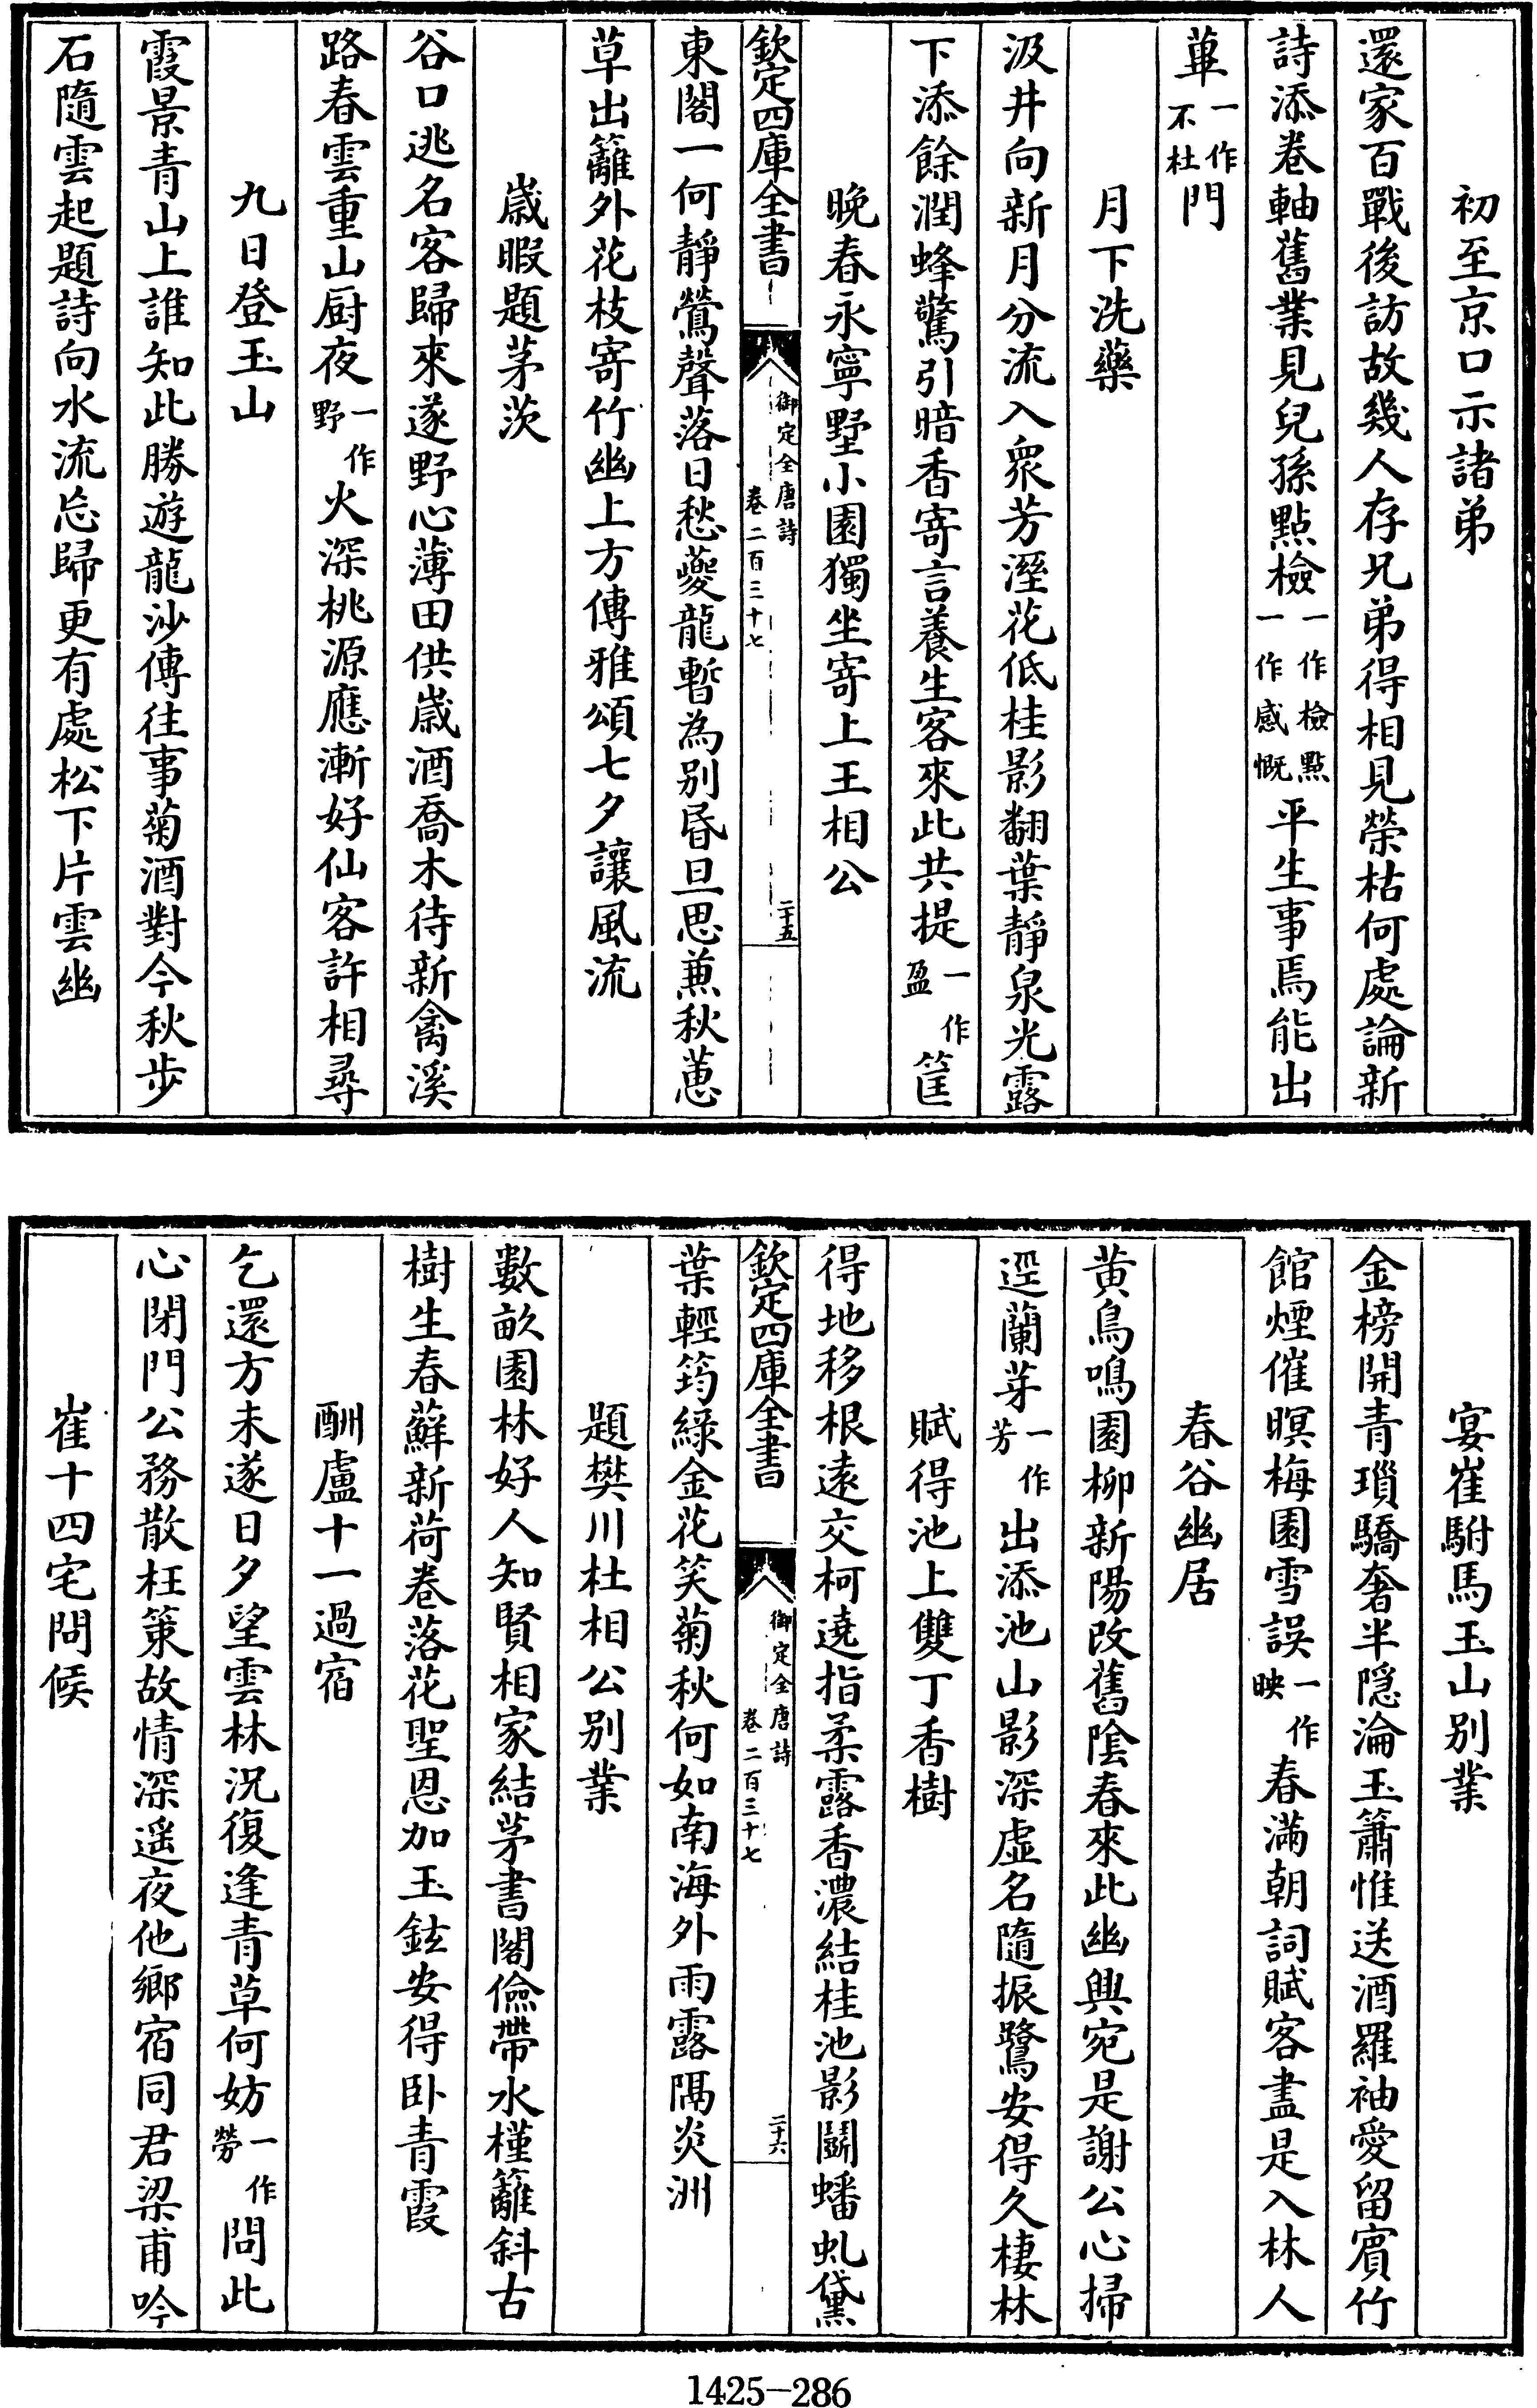 初至京口示諸弟
還家百戰後訪故幾人存兄弟得相見榮枯何處論新
詩添卷軸舊業見兒孫點檢一作檢點一作感慨平生事焉能出
蓽一作不杜門
月下洗藥
汲井向新月分流入衆芳溼花低桂影翻葉靜泉光露
下添餘潤蜂驚引暗香寄言養生客來此共提一作盈筐
晚春永寧墅小園獨坐寄上王相公
欽定四庫全書
御定全唐詩
卷二百三十七
二十五
東閣一何靜鶯聲落日愁夔龍暫為别昏旦思兼秋蕙
草出籬外花枝寄竹幽上方傳雅頌七夕讓風流
歲暇題茅茨
谷口逃名客歸來遂野心薄田供歲酒喬木待新禽溪
路春雲重山厨夜一作野火深桃源應漸好仙客許相尋
九日登玉山
霞景青山上誰知此勝遊龍沙傳往事菊酒對今秋步
石隨雲起題詩向水流忘歸更有處松下片雲幽
宴崔駙馬玉山别業
金榜開青瑣驕奢半隠淪玉簫惟送酒羅袖愛留賓竹
館煙催暝梅園雪誤一作映春滿朝詞賦客盡是入林人
春谷幽居
黄鳥鳴園柳新陽改舊陰春來此幽興宛是謝公心掃
逕蘭芽一作芳出添池山影深虚名隨振鷺安得久棲林
賦得池上雙丁香樹
得地移根遠交柯遶指柔露香濃結桂池影鬬蟠虬黛
欽定四庫全書
御定全唐詩
卷二百三十七
二十六
葉輕筠綠金花笑菊秋何如南海外雨露隔炎洲
題樊川杜相公别業
數畝園林好人知賢相家結茅書閣儉帶水槿籬斜古
樹生春蘚新荷卷落花聖恩加玉鉉安得卧青霞
酬盧十一過宿
乞還方未遂日夕望雲林況復逢青草何妨一作勞問此
心閉門公務散枉策故情深遥夜他鄉宿同君梁甫吟
崔十四宅問候
1425-286